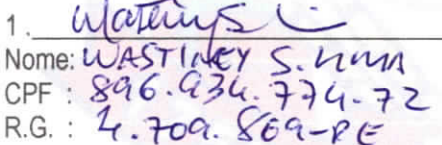 1.
Nome: WASTINEY S. LIMA
CPF : 896.934.774-72
R.G. : 4.709.869-PE